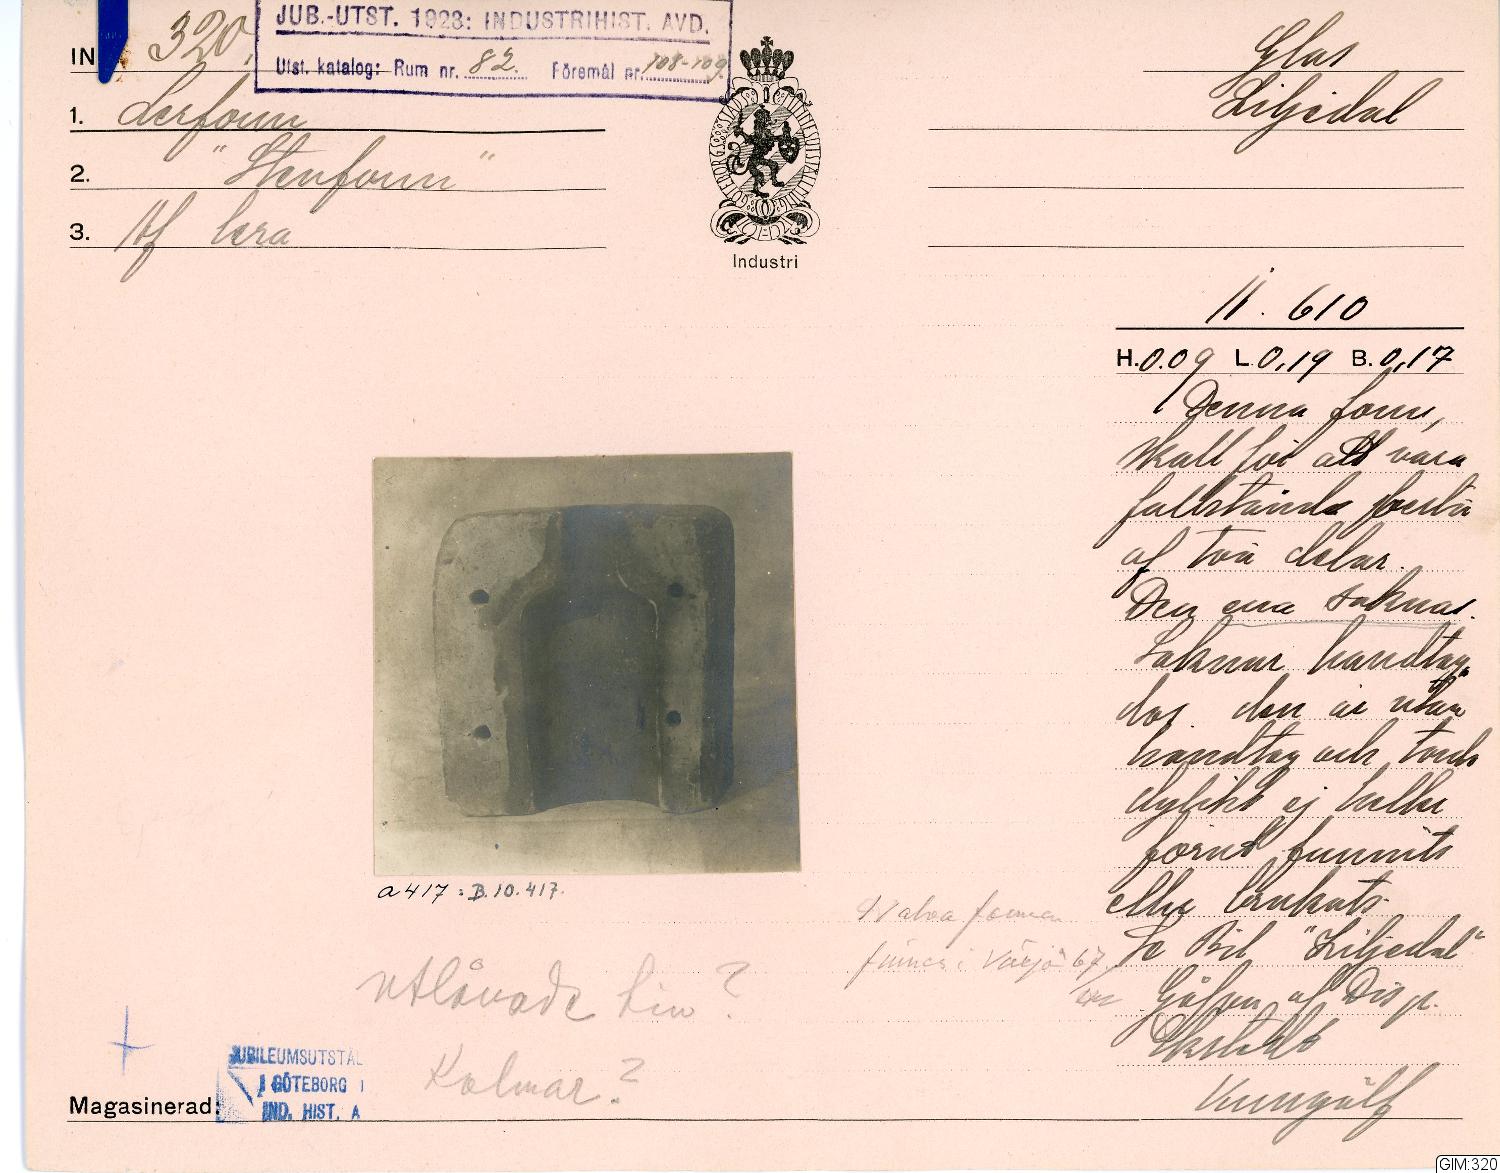 JUB.-UTST. 1923: INDUSTRIHIST. AVD.
Utst. katalog: Rum nr. 82. Föremål nr. 108-109.
IN 320.
1. Lerform
2. "Stenform"
3. Af lera
GÖTEBORGS STADS JUBILEUMSUTSTÄLLNING
Industri
Glas
Liljedal
11. 610
H. 0.09 L. 0,19 B. 0,17
Denna form,
skall för att vara
fullständig bestå
af två delar.
Den ena saknas.
Saknar handtag
dos. den är utan
handtag och torde
dylikt ej heller
förut funnits
eller brukats.
Se Bil "Liljedal"
Gåfva af Disp.
Kungälf
a 417 : B.10.417.
Halva formen
finnes i Växjö 67
utlånade till?
Kalmar?
JUBILEUMSUTSTÄL
I GÖTEBORG
IND. HIST. A
Magasinerad:
GIM:320